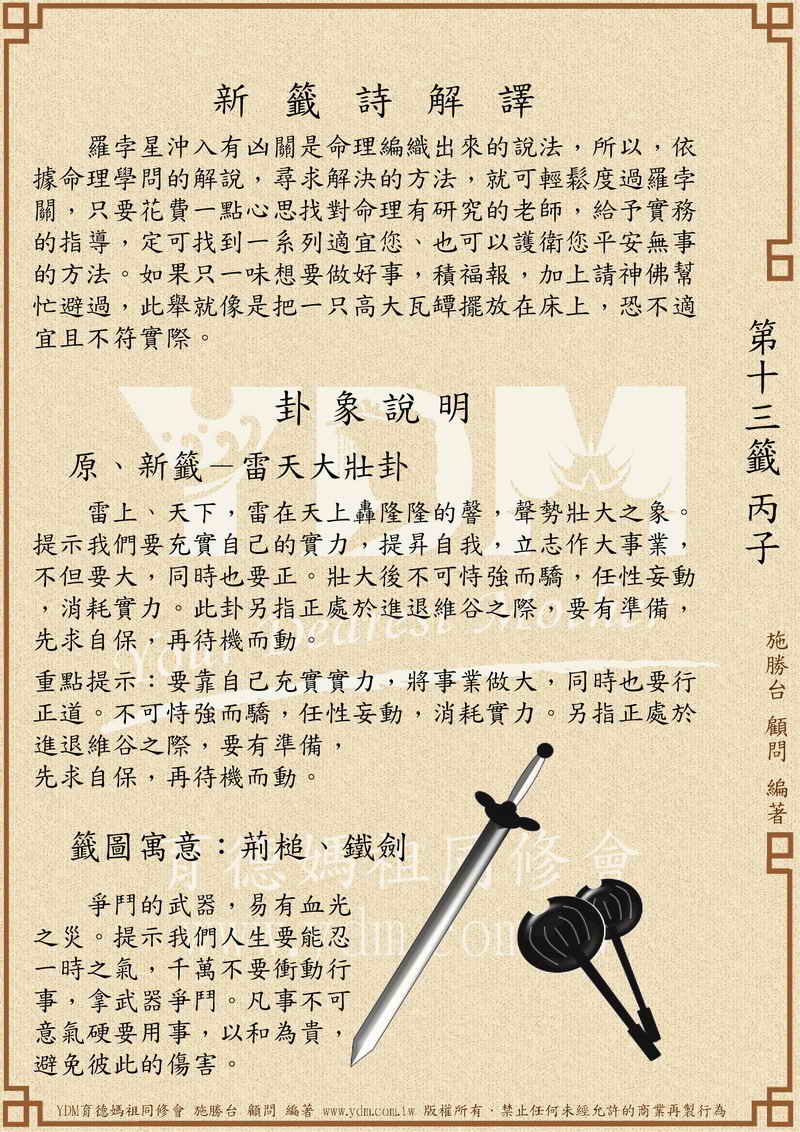 新籤詩解譯
羅孛星沖入有凶關是命理編織出來的說法，所以，依
據命理學問的解說，尋求解決的方法，就可輕鬆度過羅孛
關，只要花費一點心思找對命理有研究的老師，給予實務
的指導，定可找到一系列適宜您、也可以護衛您平安無事
的方法。如果只一味想要做好事，積福報，加上請神佛幫
忙避過，此舉就像是把一只高大瓦罈擺放在床上，恐不適
宜且不符實際。
卦象說明
原、新籤－雷天大壯卦
雷上、天下，雷在天上轟隆隆的響，聲勢壯大之象。
提示我們要充實自己的實力，提昇自我，立志作大事業，
不但要大，同時也要正。壯大後不可恃強而驕，任性妄動
，消耗實力。此卦另指正處於進退維谷之際，要有準備，
先求自保，再待機而動。
重點提示：要靠自己充實實力，將事業做大，同時也要行
正道。不可恃強而驕，任性妄動，消耗實力。另指正處於
進退維谷之際，要有準備，
先求自保，再待機而動。
籤圖寓意：荊槌、鐵劍
爭鬥的武器，易有血光
之災。提示我們人生要能忍
一時之氣，千萬不要衝動行
事，拿武器爭鬥。凡事不可
意氣硬要用事，以和為貴，
避免彼此的傷害。
第十三籤 丙子
施勝台 顧問 編著
YDM
Your Dearest Mother
育德媽祖同修會
www.ydm.com.tw
YDM育德媽祖同修會 施勝台 顧問 編著 www.ydm.com.tw 版權所有．禁止任何未經允許的商業再製行為